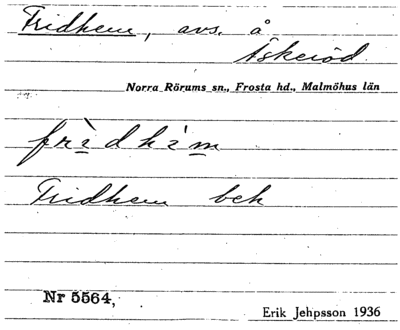 Fridhem, avs. å
Äskeröd
Norra Rörums sn., Frosta hd., Malmöhus län
Fridhem bek
Nr 5564,
Erik Jehpsson 1936